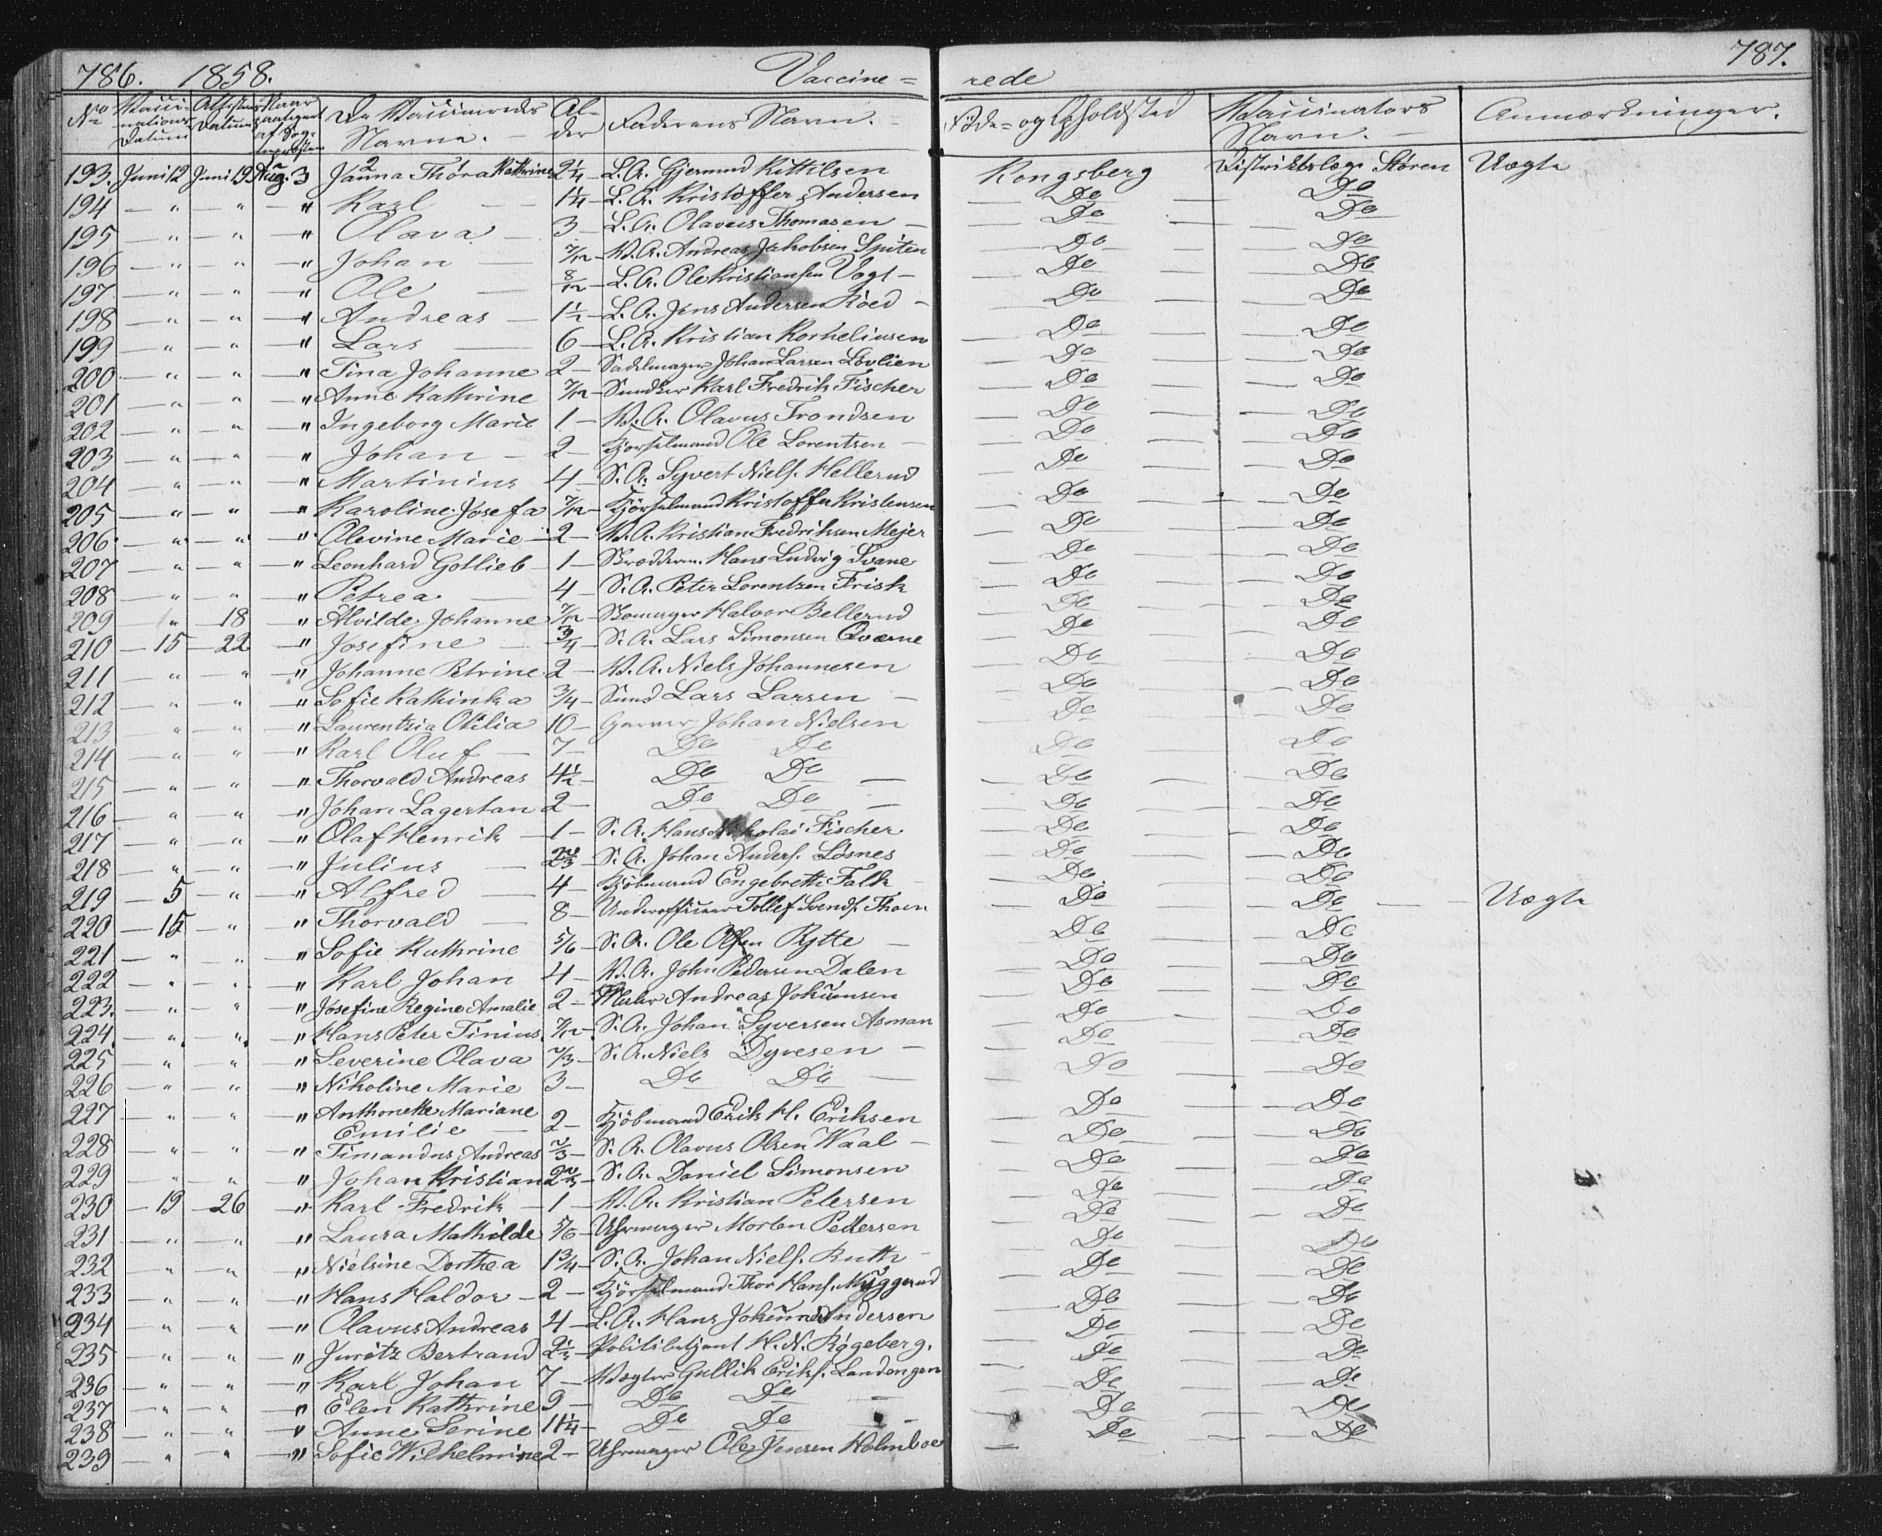 786. 1858. Vaccine= rede 787.
No Vaccinations Datum Attestens Datum De Vaccineredes Navne. Alder Faderens Navn. Føde= og Opholdsted Vaccinators Navn. Anmærkninger.
193. Juni 12 Juni 19 Aug. 3 Janna Thora Kathrine 2 1/4 L.A. Gjermund Kittilsen Kongsberg Distriktslæge Støren Uægte
194 — " — " — " Karl 1 1/4 L.A. Kristoffer Andersen Do Do
195 — " — " — " Olava 3 L.A. Olaveus Thomasen Do Do
196 — " — " — " Johan 7/12 V.A. Andreas Jakobsen Spiten Do Do
197 — " — " — " Ole 8/12 L.A. Ole Kristiansen Vogt Do Do
198 — " — " — " Andreas 1 1/2 L.A. Jens Andersen Roed Do Do
199 — " — " — " Lars 6 L.A. Kristian Korneliusen Do Do
200 — " — " — " Tina Johanne 2 Sadelmager Johan Larsen Løvlien Do Do
201 — " — " — " Anne Kathrine 7/12 Smed Karl Fredrik Fischer Do Do
202 — " — " — " Ingeborg Marie 1 V.A. Olavus Trondsen Do Do
203 — " — " — " Johan 2 Kjørselmand Ole Lorentsen Do Do
204 — " — " — " Martinius 4 S.A. Syvert Niels. Hellerud Do Do
205 — " — " — " Karoline Josefa 7/12 Kjørselmand Kristoffer Kristensen Do Do
206 — " — " — " Olevine Marie 2 V.A. Kristian Fredriksen Mejer Do Do
207 — " — " — " Leonhard Gotlieb 1 Skrædderm. Hans Ludvig Svane Do Do
208 — " — " — " Petrea 4 S.A. Peter Lorentzen Frisk Do Do
209 " — 18 " Alvilde Johanne 7/12 Skomager Halvor Bellerud Do Do
210 — 15 — 22 — " Josefine 3/4 S.A. Lars Simonsen Qværne Do Do
211 — " — " — " Johanne Petrine 2 V.A. Niels Johannesen Do Do
212 — " — " — " Sofie Kathinka 3/4 Smed Lars Larsen Do Do
213 — " — " — " Laurentzia Otilia 10 Garver Johan Nielsen Do Do
214 — " — " — " Karl Oluf 7 Do Do Do Do
215 — " — " — " Thorvald Andreas 4 1/2 Do Do Do Do
216 — " — " — " Johan Lagertan 2 Do Do Do Do
217 — " — " — " Olaf Henrik 1 S.A. Hans Nikolai Fischer Do Do
218 — " — " — " Julius 2 2/3 S.A. Johan Anders. Løsnes Do Do
219 — 5 — " — " Alfred 4 Kjøbmand Engebreth Falk Do Do Uægte
220 — 15 — " — " Thorvald 8 Underofficeer Tollef Svends. Thoen Do Do
221 — " — " — " Sofie Kathrine 5/6 S.A. Ole Olsen Rytte Do Do
222 — " — " — " Karl Johan 4 V.A. John Pedersen Dalen Do Do
223. — " — " — " Josefine Regine Amalie 2 Andreas Johannsen Do Do
224. — " — " — " Hans Peter Tinius 7/12 S.A. Johan Syversen Asman Do Do
225 — " — " — " Severine Olava 2/3 S.A. Niels Dyvesen Do Do
226 — " — " — " Nikoline Marie 3 Do Do Do Do
227 — " — " — " Anthonette Mariane
Emilie 2 Kjöbmand Erik H. Eriksen Do Do
228 — " — " — " Timandus Andreas 2/3 S.A. Olavus Olsen Waal Do Do
229 — " — " — " Johan Kristian 2 2/3 S.A. Daniel Simonsen Do Do
230 — 19 — 26 — " Karl Fredrik 1 V.A. Kristian Petersen Do Do
231 — " — " — " Laura Mathilde 5/6 Uhrmager Morten Pettersen Do Do
232 — " — " — " Nielsine Dorthea 1 3/4 S.A. Johan Niels. Ruth Do Do
233 — " — " — " Hans Haldor 2 Kjørselmand Thor Hans. Muggerud Do Do
234 — " — " — " Olavus Andreas 4 L.A. Hans Johannes Andersen Do Do
235 — " — " — " Juritz Bertrand 2 1/2 Politibetjent H.N. Røgeberg. Do Do
236 — " — " — " Karl Johan 7 Vægter Gullik Eriks. Landongen Do Do
237 — " — " — " Elen Kathrine 9 Do Do Do Do
238 — " — " — " Anne Serine 11 1/4 Do Do Do Do
239 — " — " — " Sofie Wilhelmine 2 Uhrmager Ole Jensen Holmboe